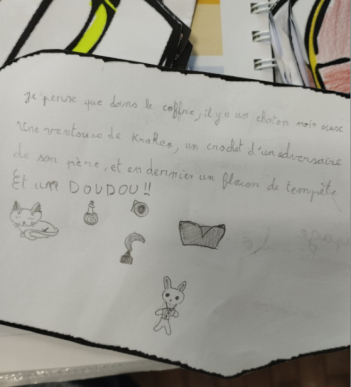 Je pense que dans le coffre, il y a un chaton noir avec
Une ventouse de Kraken, un crochet d'un adversaire
de son père, et en dernier un flacon de tempête
Et un DOUDOU!!